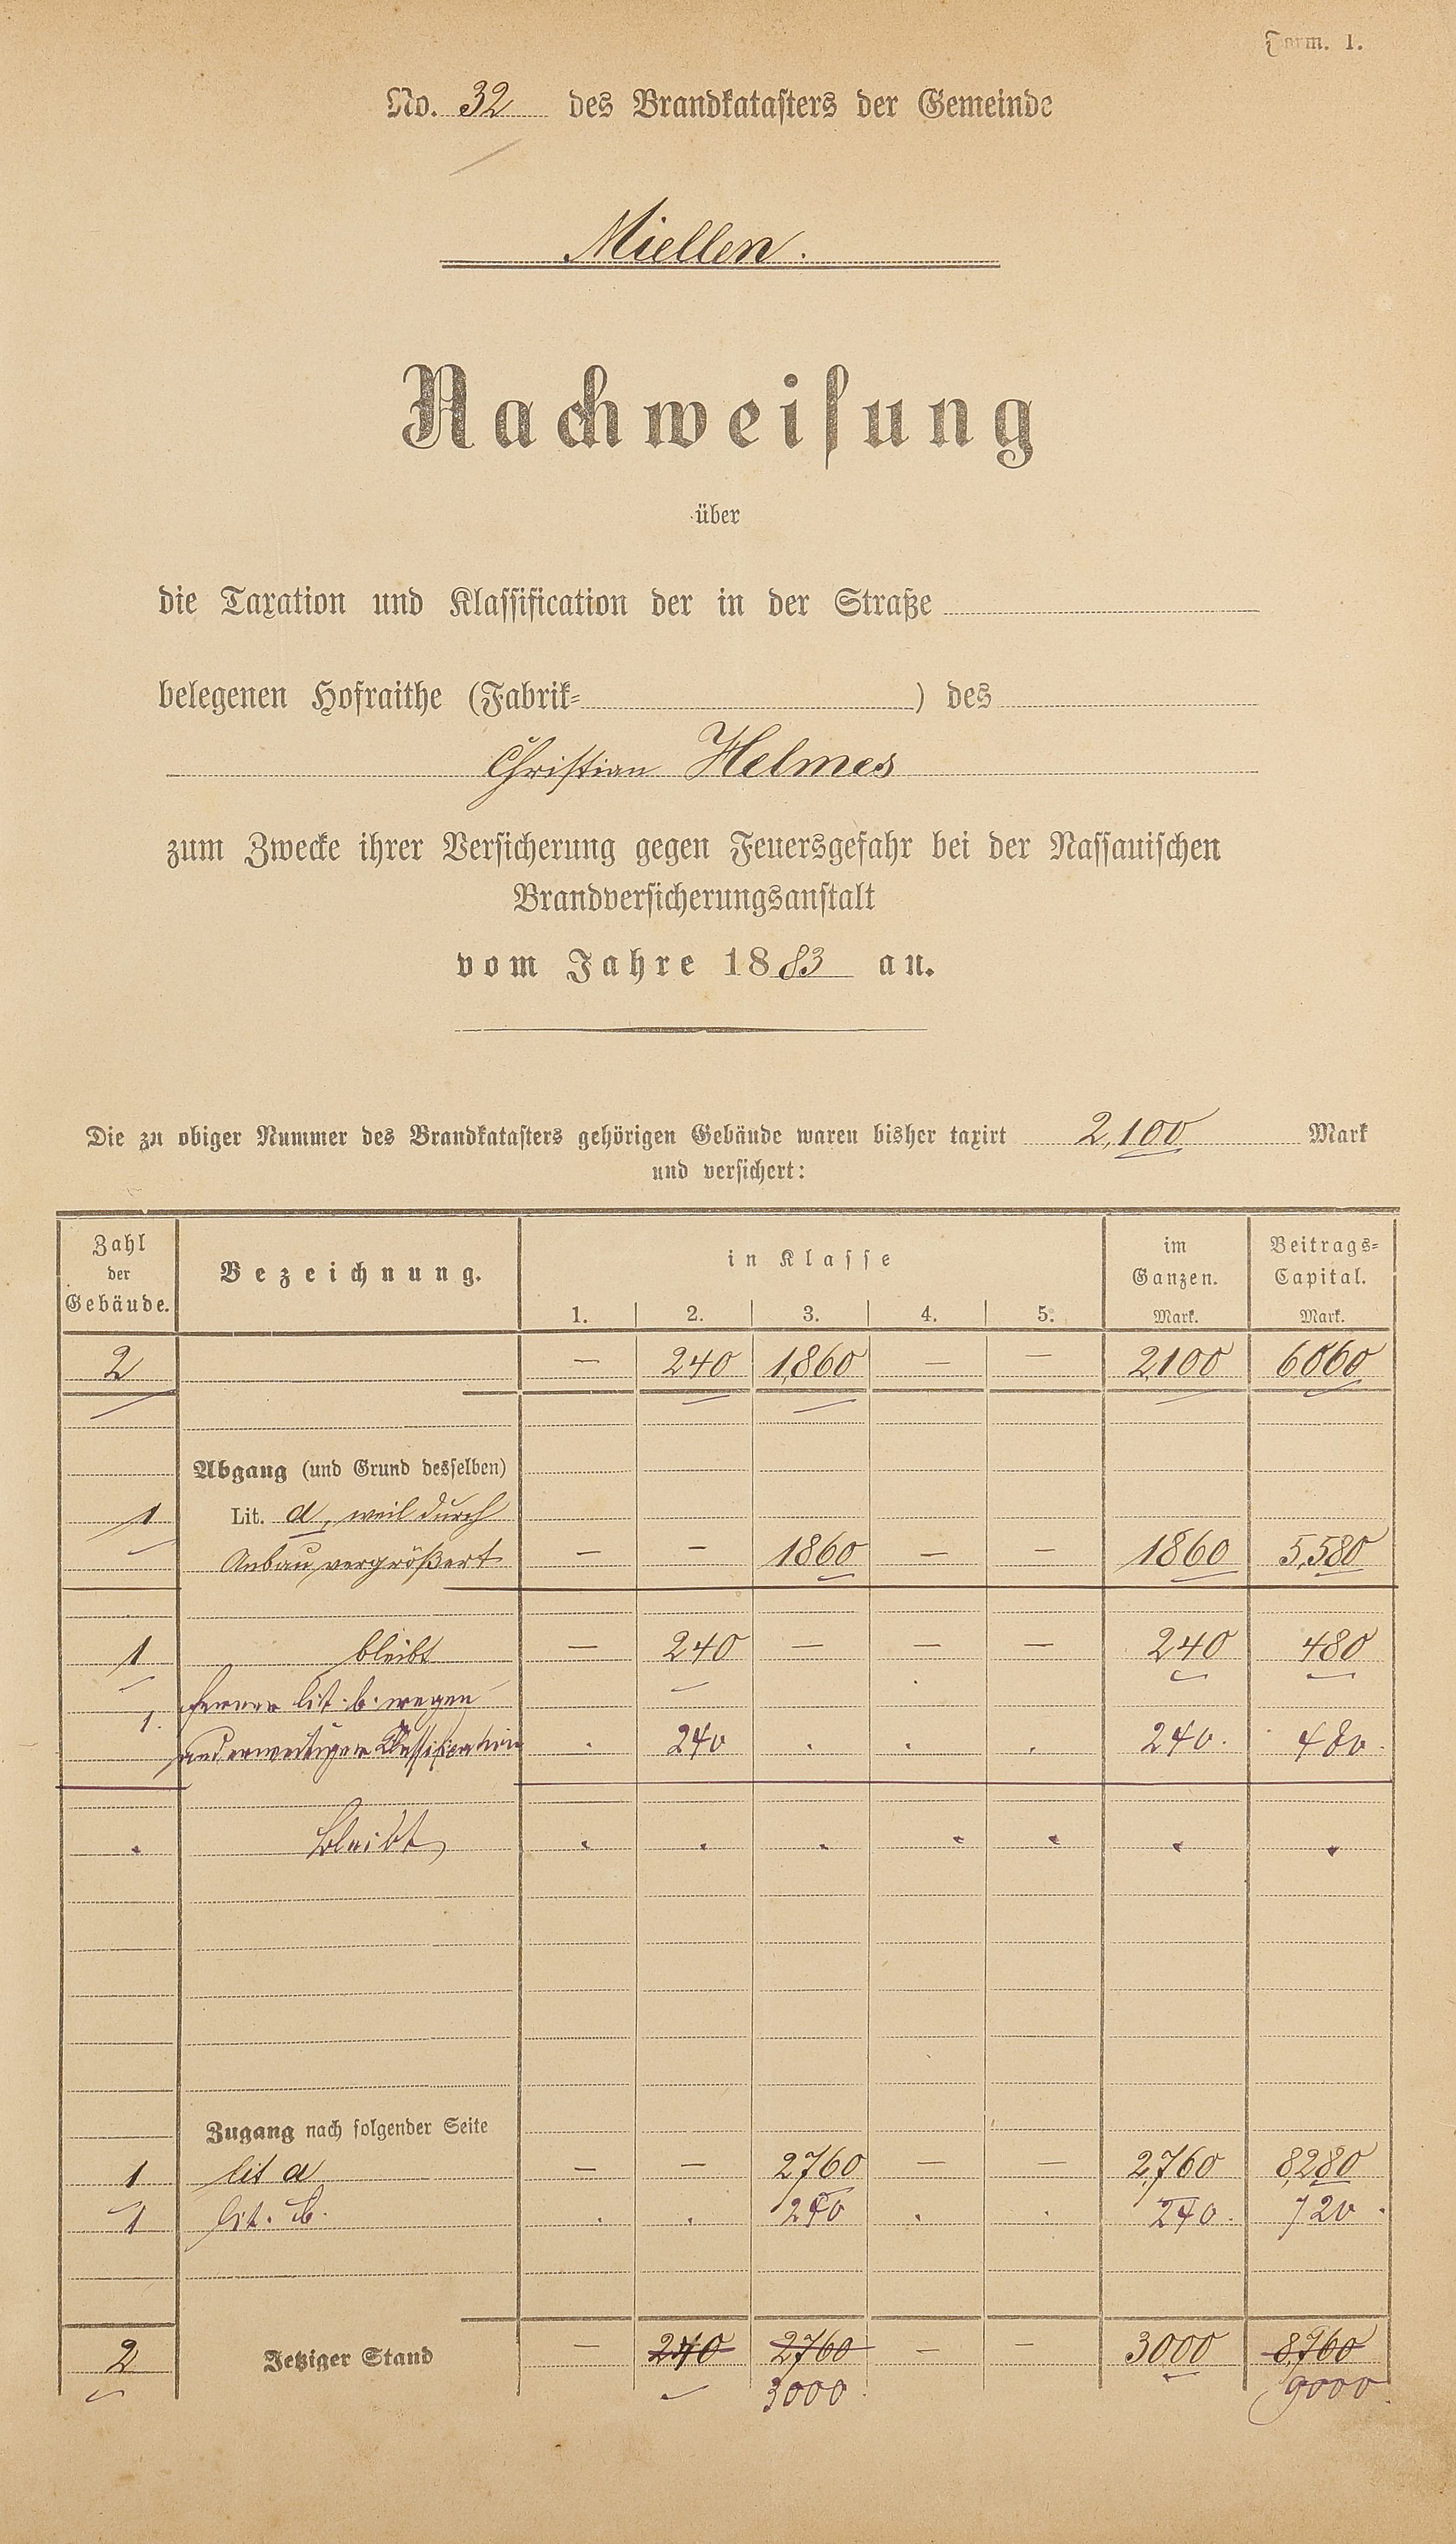 Form. 1.
No. 32 des Brandkatasters der Gemeinde
Miellen.
Nachweisung
über
die Taxation und Klassification der in der Straße
belegenen Hofraithe (Fabrik- ) des
Christian Helmes
zum Zwecke ihrer Versicherung gegen Feuersgefahr bei der Nassauischen
Brandversicherungsanstalt
vom Jahre 1883 an.
Die zu obiger Nummer des Brandkatasters gehörigen Gebäude waren bisher taxirt 2,100 Mark
und versichert:
Zahl der Gebäude. Bezeichnung. in Klasse im Ganzen. Beitrags-Capital.
1. 2. 3. 4. 5. Mark. Mark.
2 — 240 1,860 — — 2100 6060
Abgang (und Grund desselben)
1 Lit. a, weil durch
Anbau vergrößert — — 1860 — — 1860 5,580
1 bleibt — 240 — — — 240 480
1. ferner lit. b. wegen
anderweitiger Classification . 240 . . . 240. 480.
. bleibt . . . . . . .
Zugang nach folgender Seite
1 lit a — — 2760 — — 2,760 8,280
1 lit. b. . . 240 . . 240. 720.
2 Jetziger Stand — 240 2760 — — 3000 8,760
3000 9000.